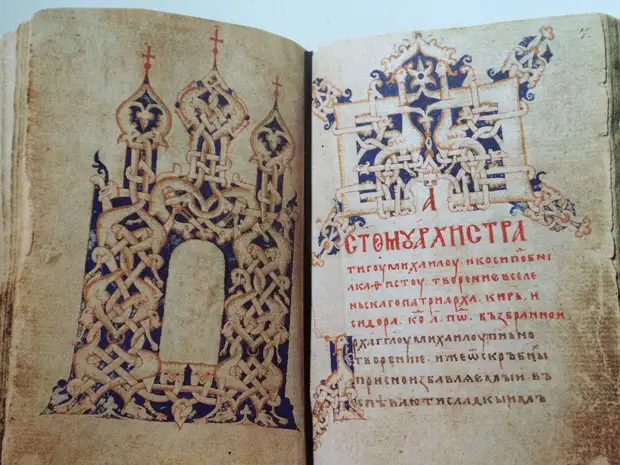 А
СТ҃ОМОУ АРХИСТРА
тигоу михаилоу, и косипⷣобнї
акаѳистоу. творение вселе
ньскаго патриарха. кирь, и
сидора. пѿ. възбранной
архагг҃лоу михаилоу
творение. скръбны
присно избавлѧемыи. въ
спѣваюти сладкыи